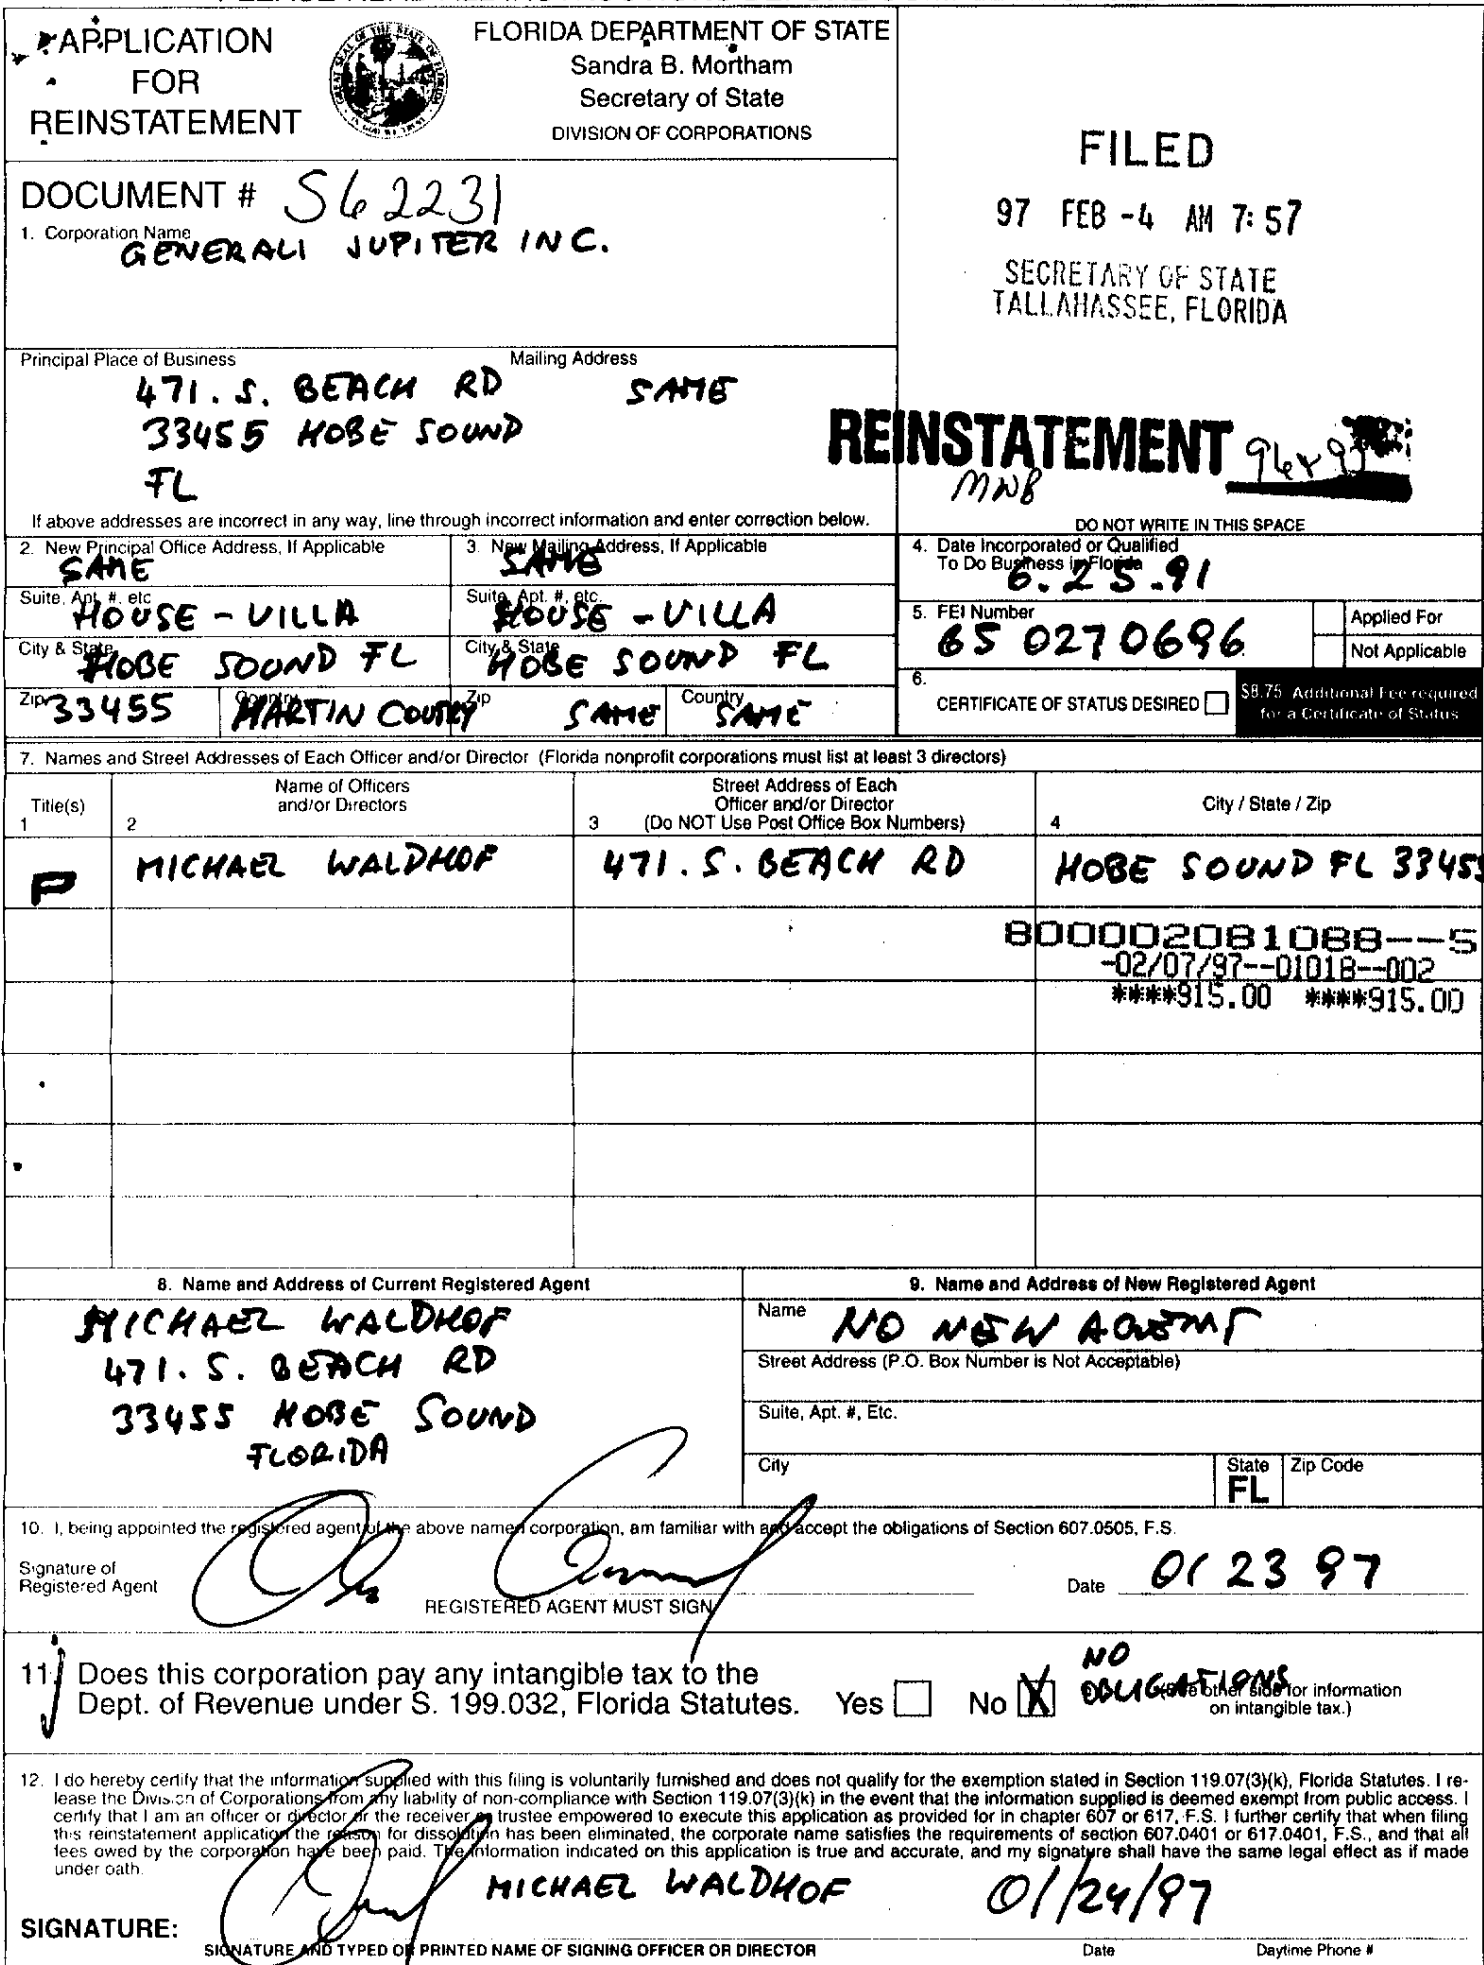 APPLICATION
FOR
REINSTATEMENT
FLORIDA DEPARTMENT OF STATE
Sandra B. Mortham
Secretary of State
DIVISION OF CORPORATIONS
FILED
97 FEB -4 AM 7:57
SECRETARY OF STATE
TALLAHASSEE, FLORIDA
DOCUMENT # S62231
1. Corporation Name
GENERALI JUPITER INC.
Principal Place of Business
471. S. BEACH RD
33455 HOBE SOUND
FL
Mailing Address
SAME
REINSTATEMENT
MWB
If above addresses are incorrect in any way, line through incorrect information and enter correction below.
DO NOT WRITE IN THIS SPACE
2. New Principal Office Address, If Applicable
SAME
3. New Mailing Address, If Applicable
SAME
4. Date Incorporated or Qualified
To Do Business in Florida
6.25.91
Suite, Apt. #, etc.
HOUSE - VILLA
Suite, Apt. #, etc.
HOUSE - VILLA
5. FEI Number
65 0270696
Applied For
Not Applicable
City & State
HOBE SOUND FL
City & State
HOBE SOUND FL
Zip 33455
Country MARTIN COUTRY
Zip SAME
Country SAME
6.
CERTIFICATE OF STATUS DESIRED
$8.75 Additional Fee required
for a Certificate of Status
7. Names and Street Addresses of Each Officer and/or Director (Florida nonprofit corporations must list at least 3 directors)
Title(s)
1
Name of Officers
and/or Directors
2
Street Address of Each
Officer and/or Director
3 (Do NOT Use Post Office Box Numbers)
City / State / Zip
4
P MICHAEL WALDHOF 471. S. BEACH RD HOBE SOUND FL 33455
800002081088--5
-02/07/97--01018--002
****915.00 ****915.00
8. Name and Address of Current Registered Agent
MICHAEL WALDHOF
471. S. BEACH RD
33455 HOBE SOUND
FLORIDA
9. Name and Address of New Registered Agent
Name NO NEW AGENT
Street Address (P.O. Box Number is Not Acceptable)
Suite, Apt. #, Etc.
City
State
FL
Zip Code
10. I, being appointed the registered agent of the above named corporation, am familiar with and accept the obligations of Section 607.0505, F.S.
Signature of
Registered Agent
REGISTERED AGENT MUST SIGN
Date 01 23 97
11. Does this corporation pay any intangible tax to the
Dept. of Revenue under S. 199.032, Florida Statutes. Yes No X
NO
OBLIGATIONS
(See other side for information
on intangible tax.)
12. I do hereby certify that the information supplied with this filing is voluntarily furnished and does not qualify for the exemption stated in Section 119.07(3)(k), Florida Statutes. I re-
lease the Division of Corporations from any liability of non-compliance with Section 119.07(3)(k) in the event that the information supplied is deemed exempt from public access. I
certify that I am an officer or director or the receiver or trustee empowered to execute this application as provided for in chapter 607 or 617, F.S. I further certify that when filing
this reinstatement application the reason for dissolution has been eliminated, the corporate name satisfies the requirements of section 607.0401 or 617.0401, F.S., and that all
fees owed by the corporation have been paid. The information indicated on this application is true and accurate, and my signature shall have the same legal effect as if made
under oath.
MICHAEL WALDHOF 01/24/97
SIGNATURE:
SIGNATURE AND TYPED OR PRINTED NAME OF SIGNING OFFICER OR DIRECTOR
Date
Daytime Phone #